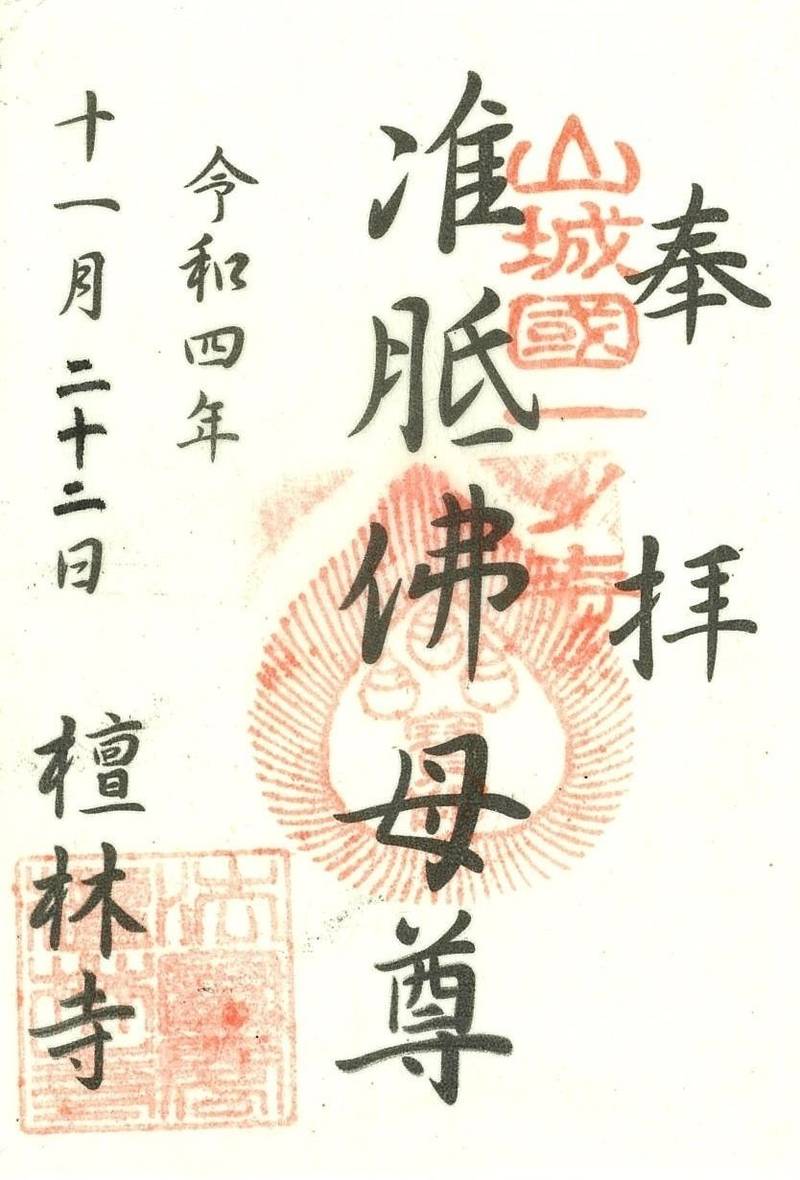 奉拝
山城國一ノ寺
准胝佛母尊
令和四年
十一月二十二日
檀林寺